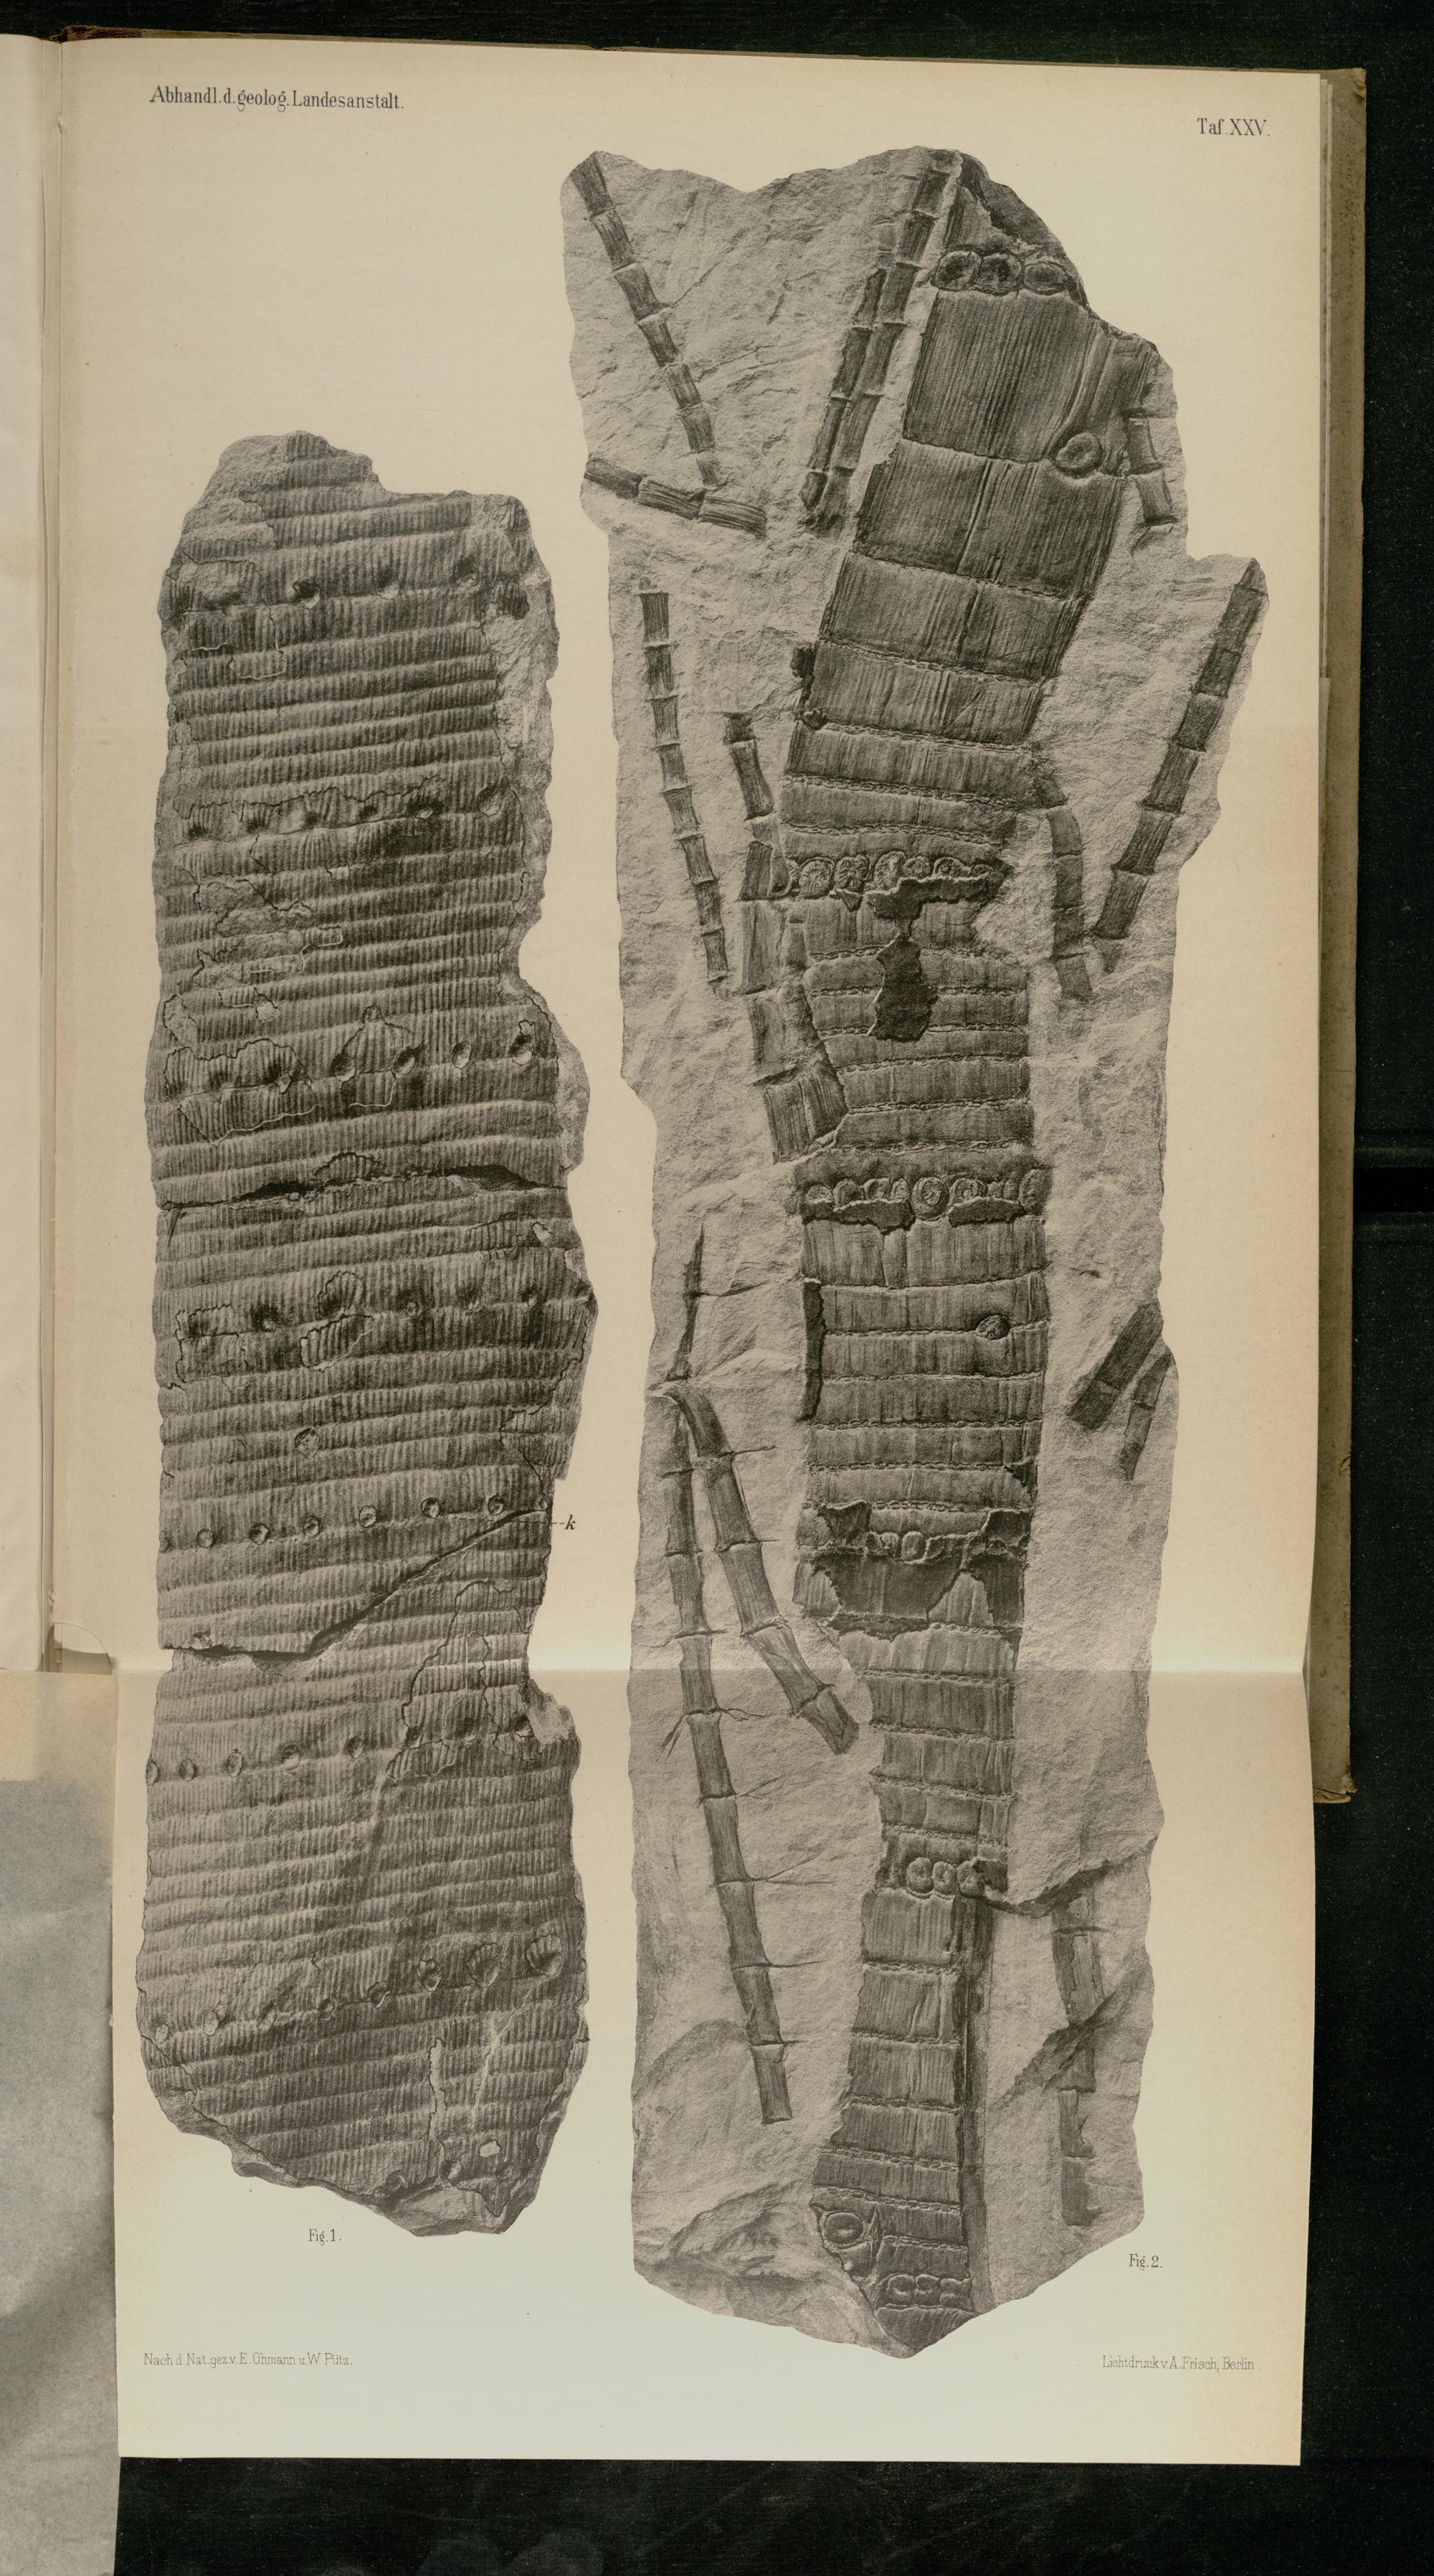 Abhandl.d.geolog.Landesanstalt.
Taf.XXV.
k
Fig.1.
Fig.2.
Nach d.Nat.gez.v.E.Ohmann u.W.Pütz.
Lichtdruck v.A.Frisch, Berlin.